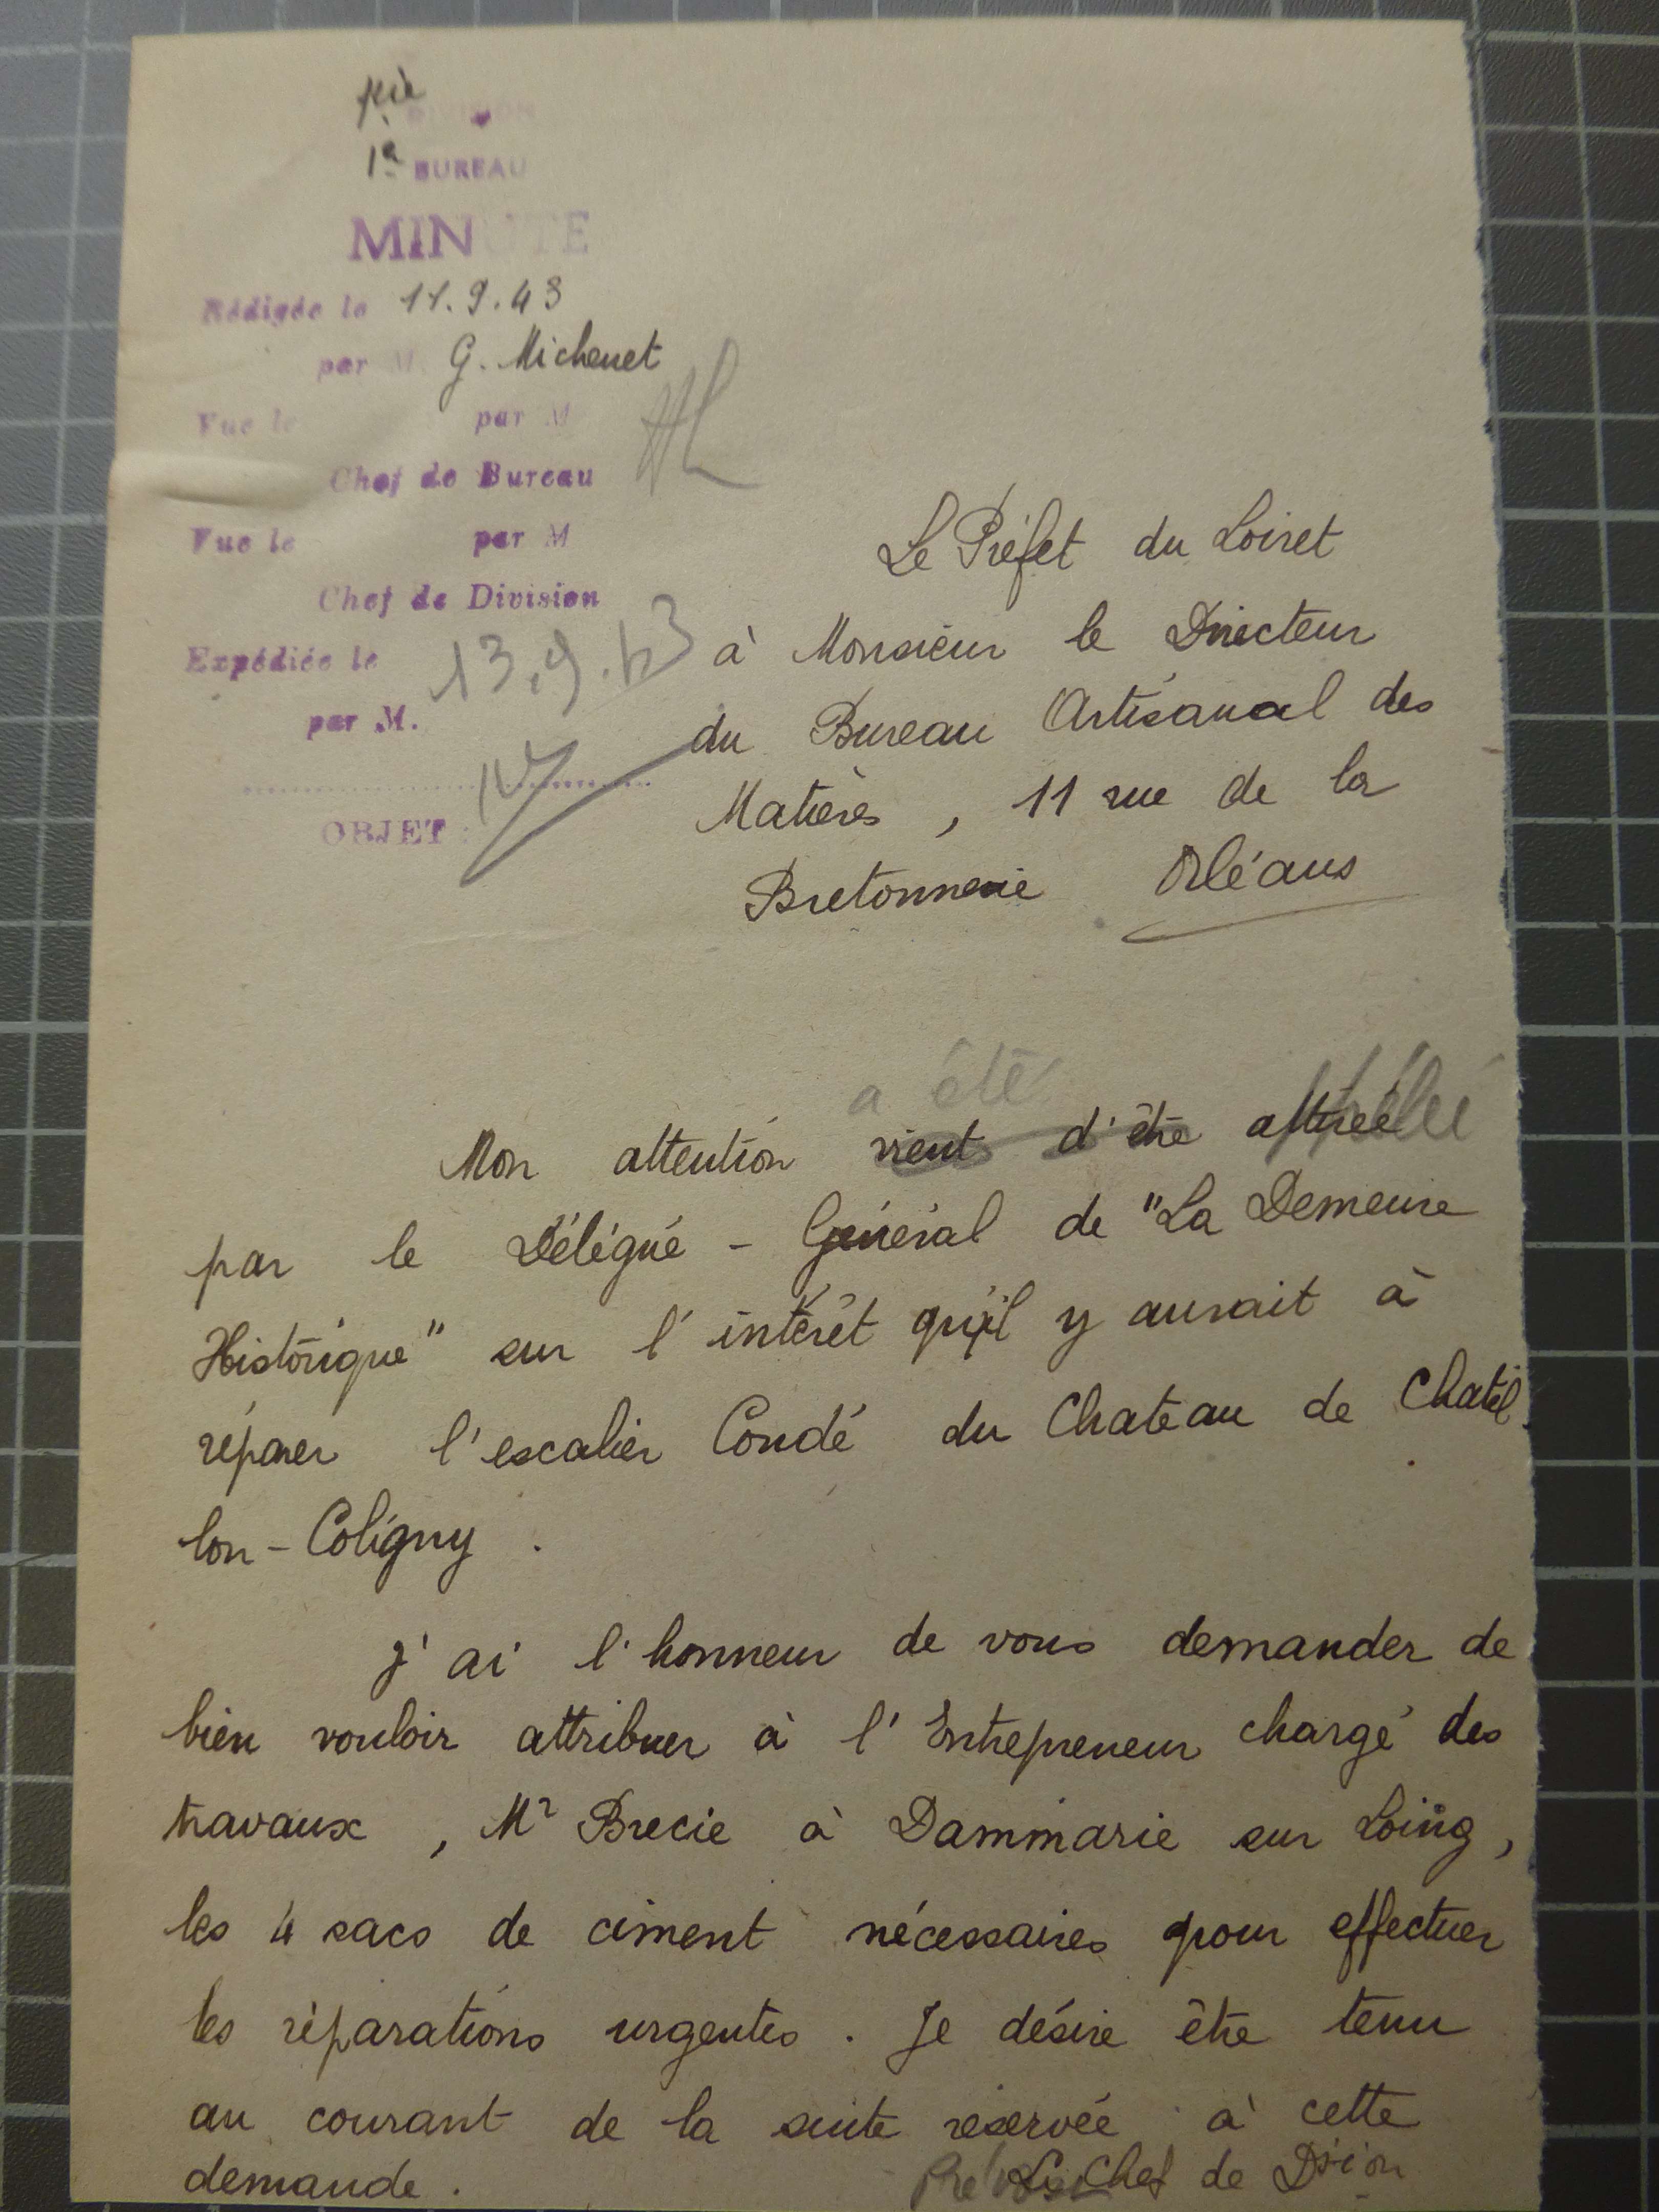 1ère DIVISION
1er BUREAU
MINUTE
Rédigée le 11.9.43
par M. G. Michenet
Vue le par M
Chef de Bureau
Vue le par M
Chef de Division
Expédiée le 13.9.43
par M.
OBJET :
Le Préfet du Loiret
à Monsieur le Directeur
du Bureau Artisanal des
Matières, 11 rue de la
Bretonnerie Orléans
a été
Mon attention vient d'être attirée
par le Délégué - Général de "La Demeure
Historique" sur l'intérêt qu'il y aurait à
réparer l'escalier Condé du Chateau de Chatil
lon - Coligny .
J'ai l'honneur de vous demander de
bien vouloir attribuer à l'Entrepreneur chargé des
travaux, Mr Brecie à Dammarie sur Loing,
les 4 sacs de ciment nécessaires pour effectuer
les réparations urgentes. Je désire être tenu
au courant de la suite réservée à cette
demande.
Le Chef de Dsion